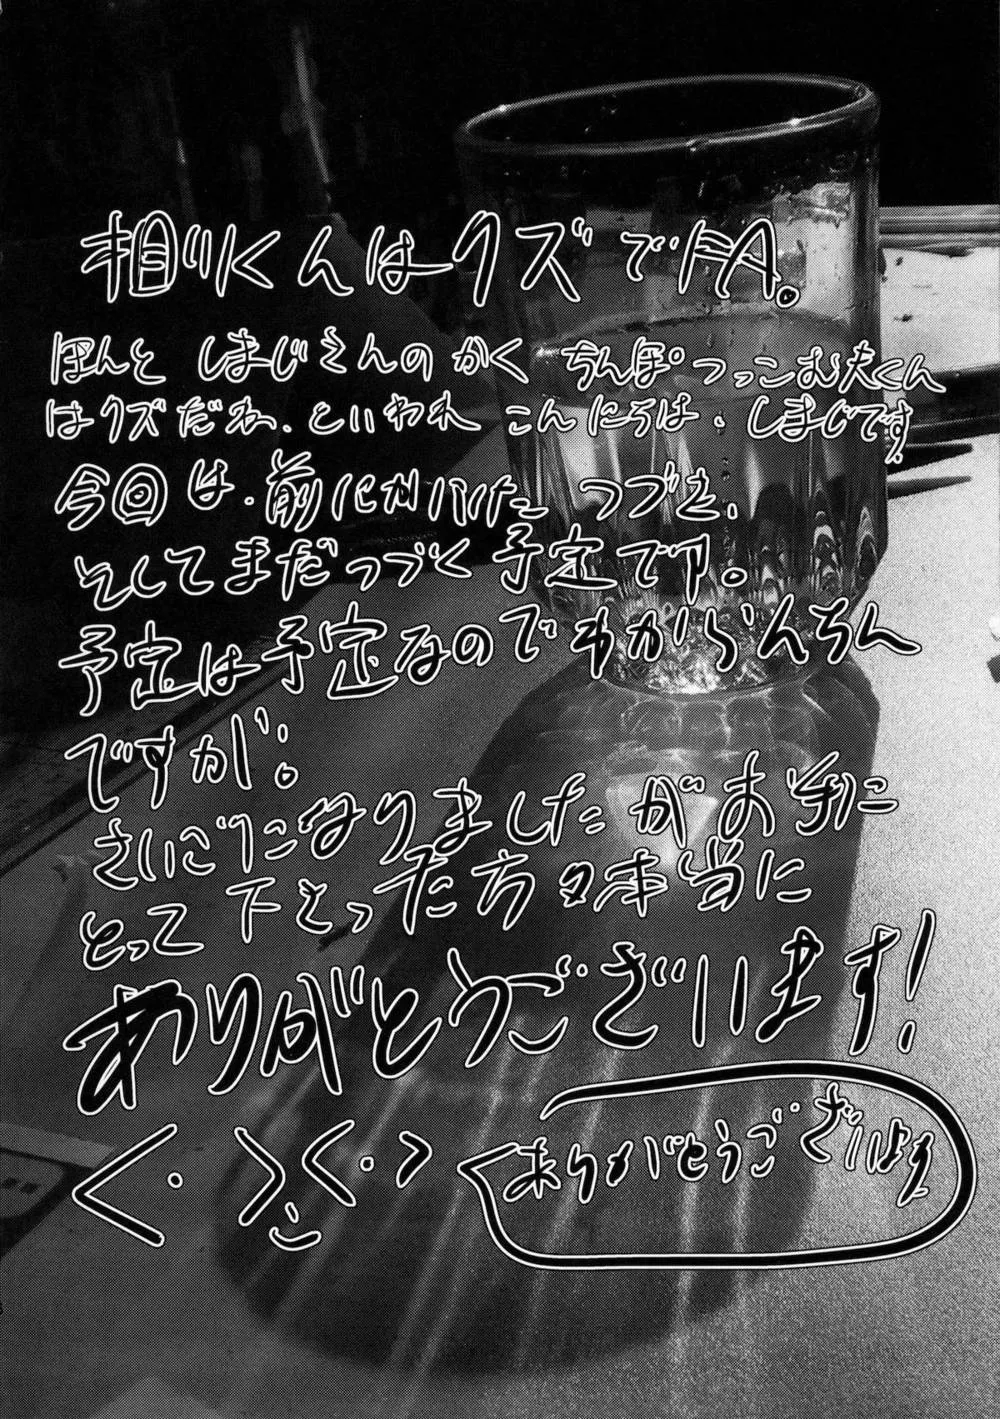 相川くんはクズでFA。
ほんと しまじさんのかく ちんぽつっこむ夫くん
はクズだね、といわれ こんにちは、しまじです。
今回は、前にかいた つづき、
そしてまだつづく予定です。
予定は予定なのでわからんちん
ですが。
さいごになりましたがお手に
とって下さった方々本当に
ありがとうございます!
<・><・>
ありがとうござい